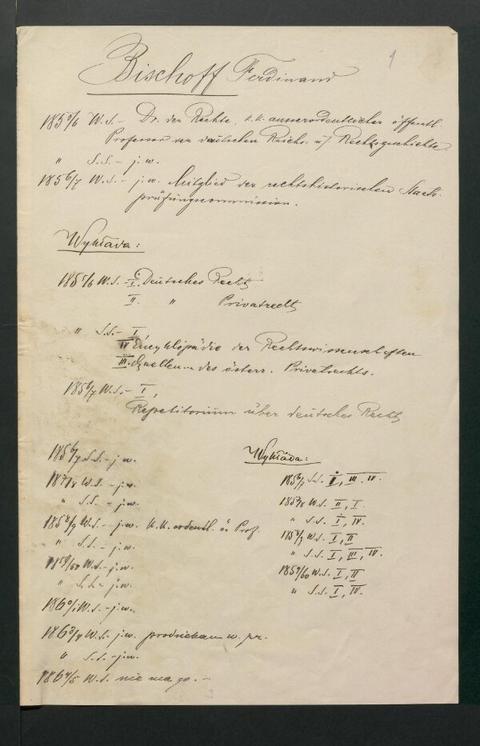 1
Bischoff Ferdinand
1855/6 W.S.- Dr. der Rechte, k.k. ausserordentlicher öffentl.
Professor von deutschen Reichs- u/ Rechtsgeschichte
" S.S.- j.w.
1856/7 W.S.- j.w. Mitglied der rechtshistorischen Staats-
prüfungscommission.
Wykłada:
1855/6 W.S.- I. Deutsches Recht
II. " Privatrecht
" S.S.- I,
IV Encyklopädie der Rechtswissenschaften
III. Quellen des österr. Privatrechts.
1856/7 W.S.- I,
Repetitorium über deutsches Recht
1856/7 S.S.- j.w.
W.S.- j.w.
" S.S.- j.w.
1858/9 W.S.- j.w. K.K. ordentl. ö. Prof.
" S.S.- j.w.
1859/60 W.S.- j.w.
" S.S.- j.w.
1860/1 W.S.- j.w.
1863/4 W.S. j.w. prodziekan w. pr.
" S.S.- j.w.
1864/5 W.S. nie ma go.-
Wykłada:
1856/7 S.S. I, III. IV.
W.S. II, I.
" S.S. I, IV.
1858/9 W.S. I, II
" S.S. I, III, IV.
1859/60 W.S. I, II
" S.S. I, IV.